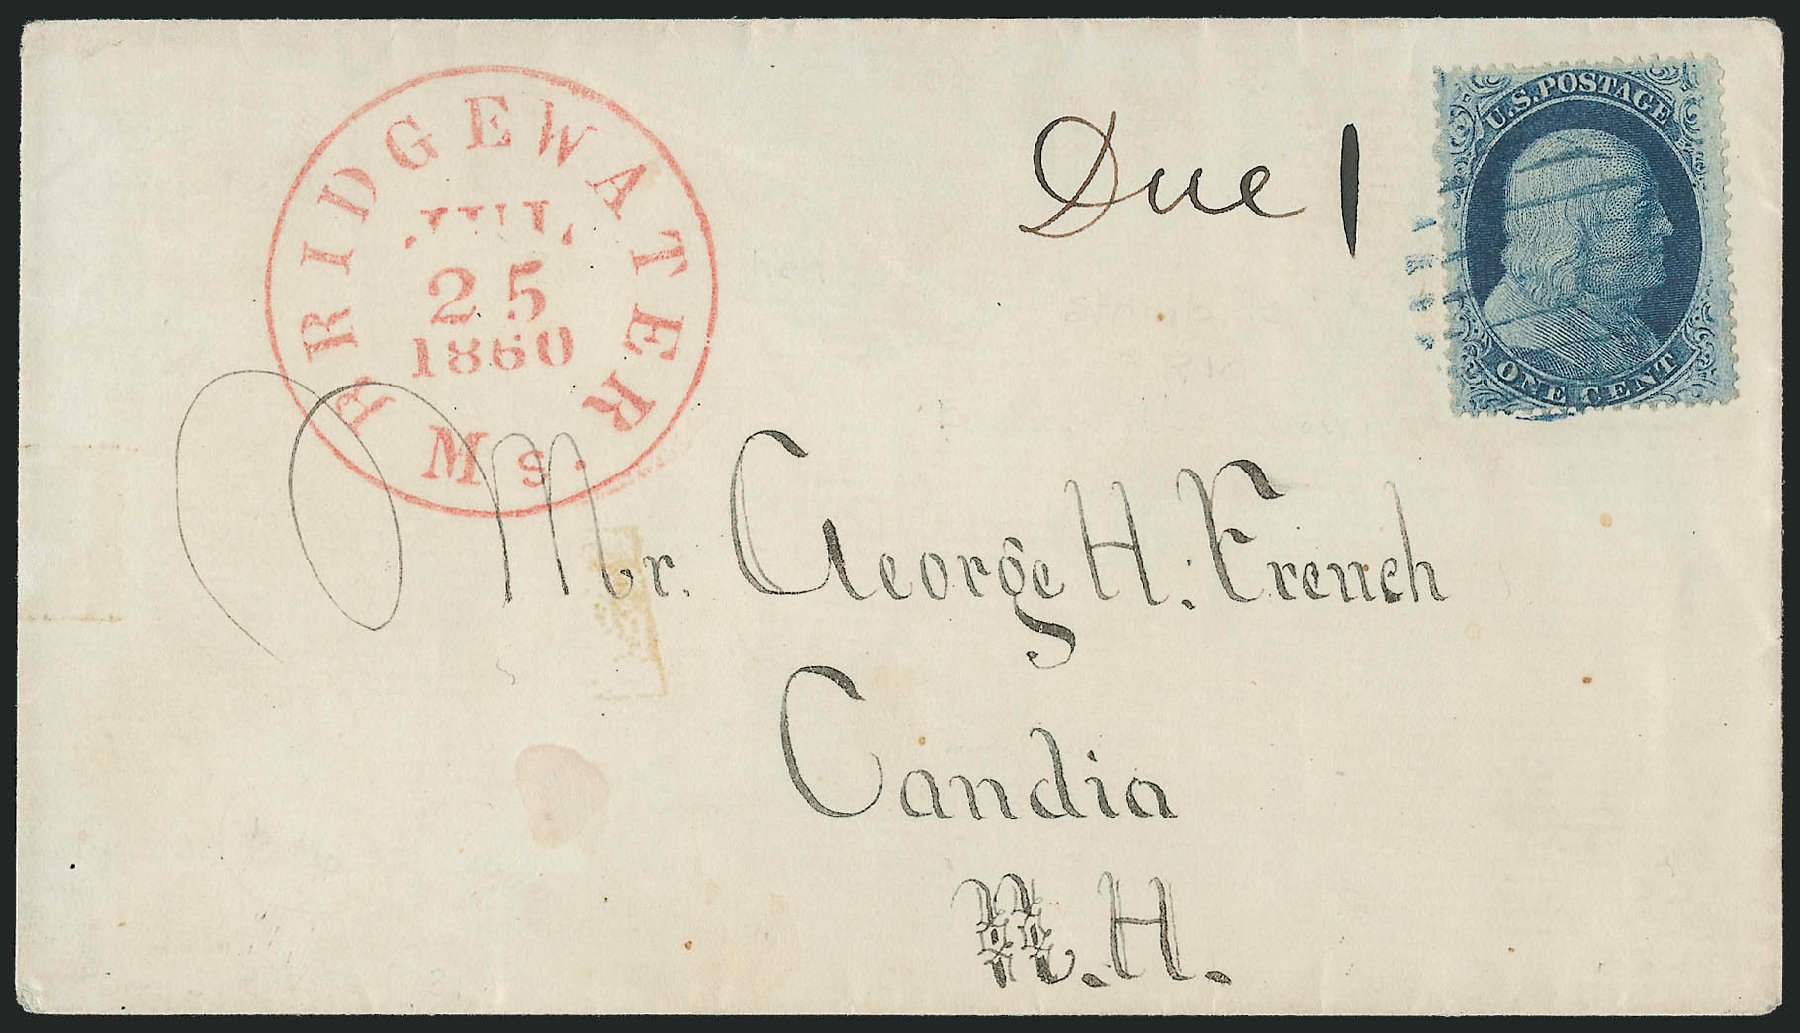 BRIDGEWATER
JUL
25
1860
Ms.
Due 1
U.S. POSTAGE
ONE CENT
Mr. George H. French
Candia
N.H.